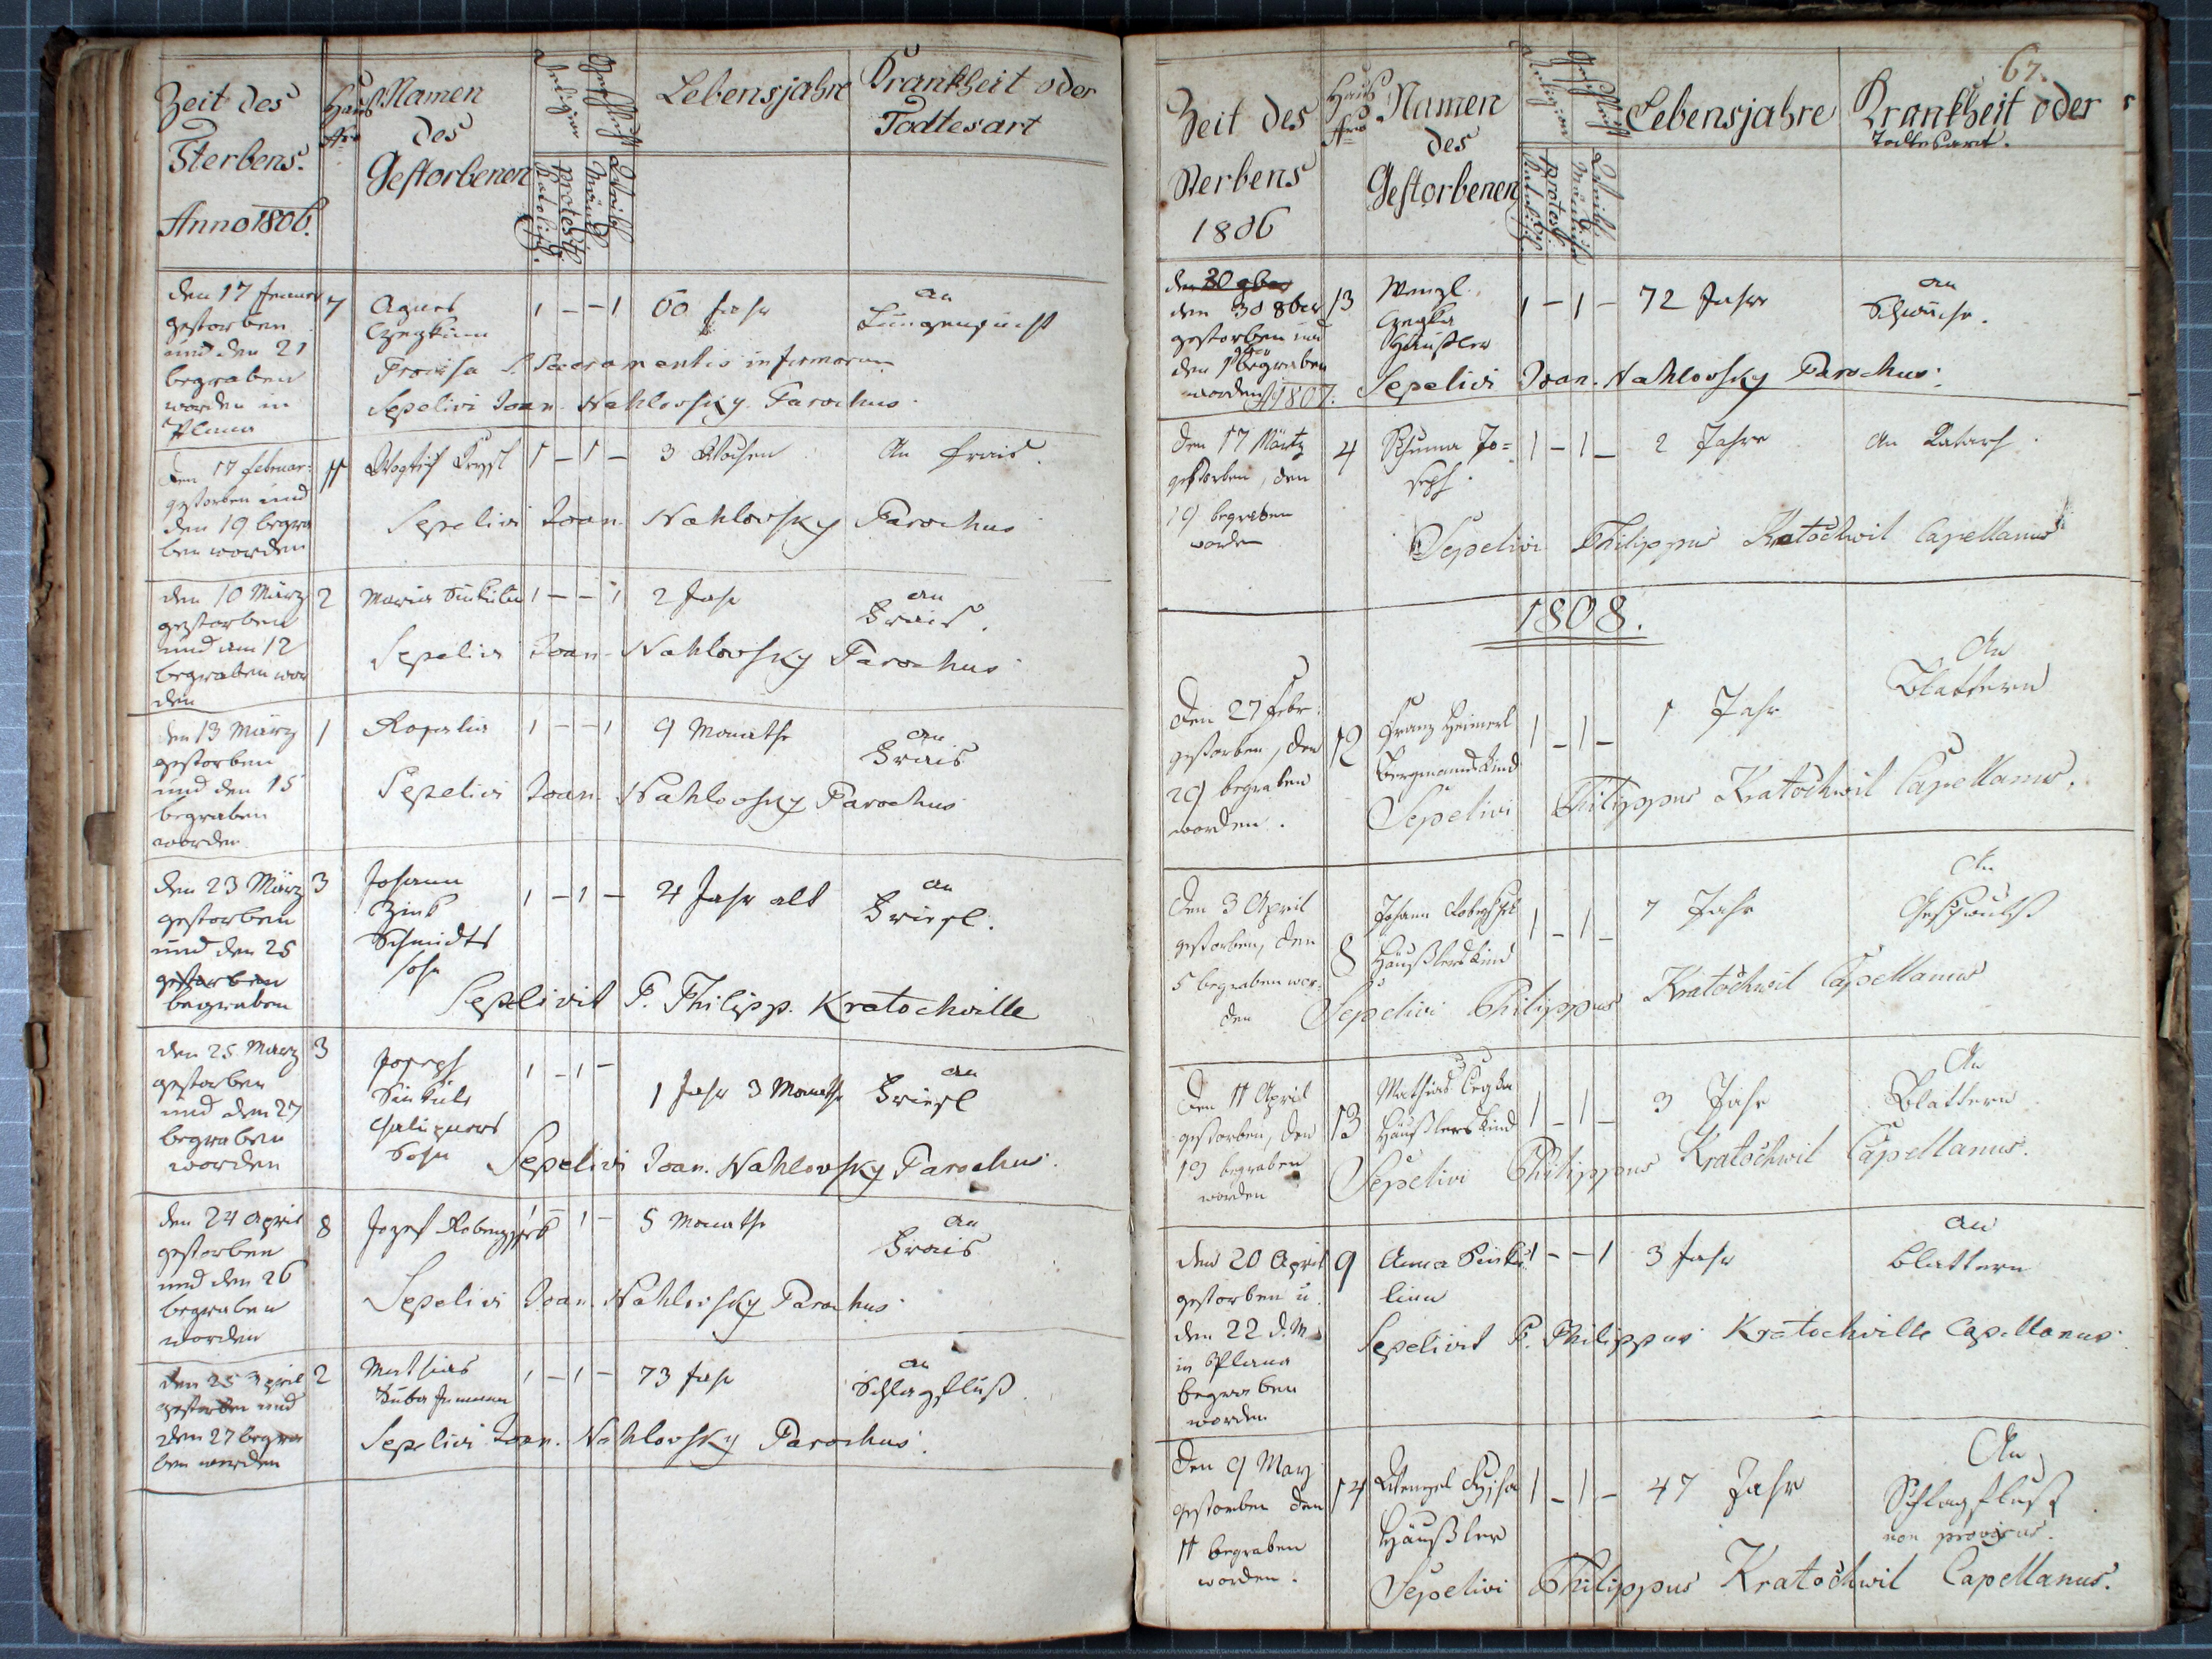 Zeit des
Sterbens.
Anno 1806.
Haus
Nro
Namen
des
Gestorbenen
Religion
Katolisch.
Protest.
Geschlecht
Männl.
Weibl.
Lebensjahre
Krankheit oder
Todtesart
den 17 Jenner
gestorben
und den 21
begraben
worden in
Plana
7
Agnes
1 - - 1
60 Jahr
an
Lungensucht
Provisa S. Sacramentis infirmorum
Sepelivi Joan. Nahlovsky Parochus.
Den 17 Februar:
gestorben und
den 19 begra
ben worden
11
1 - 1 -
3 Wochen
An Frais.
Sepelivi Joan. Nahlovsky Parochus
den 10 März
gestorben
und am 12
begraben wor
den
2
Maria
1 - - 1
2 Jahr
an
Frais.
Sepelivi Joan. Nahlovsky Parochus
den 13 März
gestorben
und den 15
begraben
worden
1
Rosalia
1 - - 1
9 Monathe
an
Frais
Sepelivi Joan. Nahlovsky Parochus
den 23 März
gestorben
und den 25
gestorben
begraben
3
Johann
Zink
Schmidts
Sohn
1 - 1 -
4 Jahr alt
an
Friesl.
Sepelivit P. Philipp. Kratochville
den 25 März
gestorben
und den 27
begraben
worden
3
Joseph
Sohn
1 - 1 -
1 Jahr 3 Monathe
an
Friesl
Sepelivi Joan. Nahlovsky Parochus.
den 24 April
gestorben
und den 26
begraben
worden
8
Jozef
1 - 1 -
5 Monathe
an
Frais
Sepelivi Joan. Nahlovsky Parochus.
den 25 April
gestorben und
den 27 begra
ben worden
2
Mathias
1 - 1 -
73 Jahr
an
Schlagfluß.
Sepelivi Joan. Nahlovsky Parochus.
67.
Zeit des
Sterbens
1806
Haus
Nro
Namen
des
Gestorbenen
Religion
Katolisch
Protest.
Geschlecht
Männlich
Weibl.
Lebensjahre
Krankheit oder
Todtesart.
den 30 8ber
gestorben und
den 1 9ber begraben
worden
13
Wenzl
Häußler
1 - 1 -
72 Jahre
an
Schwäche.
Sepelivi Joan. Nahlovsky Parochus.
1807.
Den 17 März
gestorben, den
19 begraben
worden
4
Jo=
seph.
1 - 1 -
2 Jahre
An Katarh.
Sepelivi Philippus Kratochwil Capellanus
1808.
Den 27 Febr.
gestorben, den
29 begraben
worden.
12
Franz Heimerl
Bergmanns Kind
1 - 1 -
1 Jahr
An
Blattern
Sepelivi Philippus Kratochwil Capellanus.
Den 3 April
gestorben, den
5 begraben wor=
den
8
Johann
Häußlers Kind
1 - 1 -
7 Jahr
An
Geschwulst
Sepelivi Philippus Kratochwil Capellanus
Den 11 April
gestorben, den
13 begraben
worden
13
Mathias
Häußlers Kind
1 - 1 -
3 Jahr
An
Blattern
Sepelivi Philippus Kratochwil Capellanus.
Den 20 April
gestorben u.
den 22 d. M.
in Plana
begraben
worden
9
Anna Sinku
linn
1 - - 1
3 Jahr
an
Blattern
Sepelivit P. Philippus Kratochville Capellanus.
Den 9 May
gestorben den
11 begraben
worden.
14
Wenzel
Häußler
1 - 1 -
47 Jahr
An
Schlagfluß
non provisus.
Sepelivi Philippus Kratochwil Capellanus.